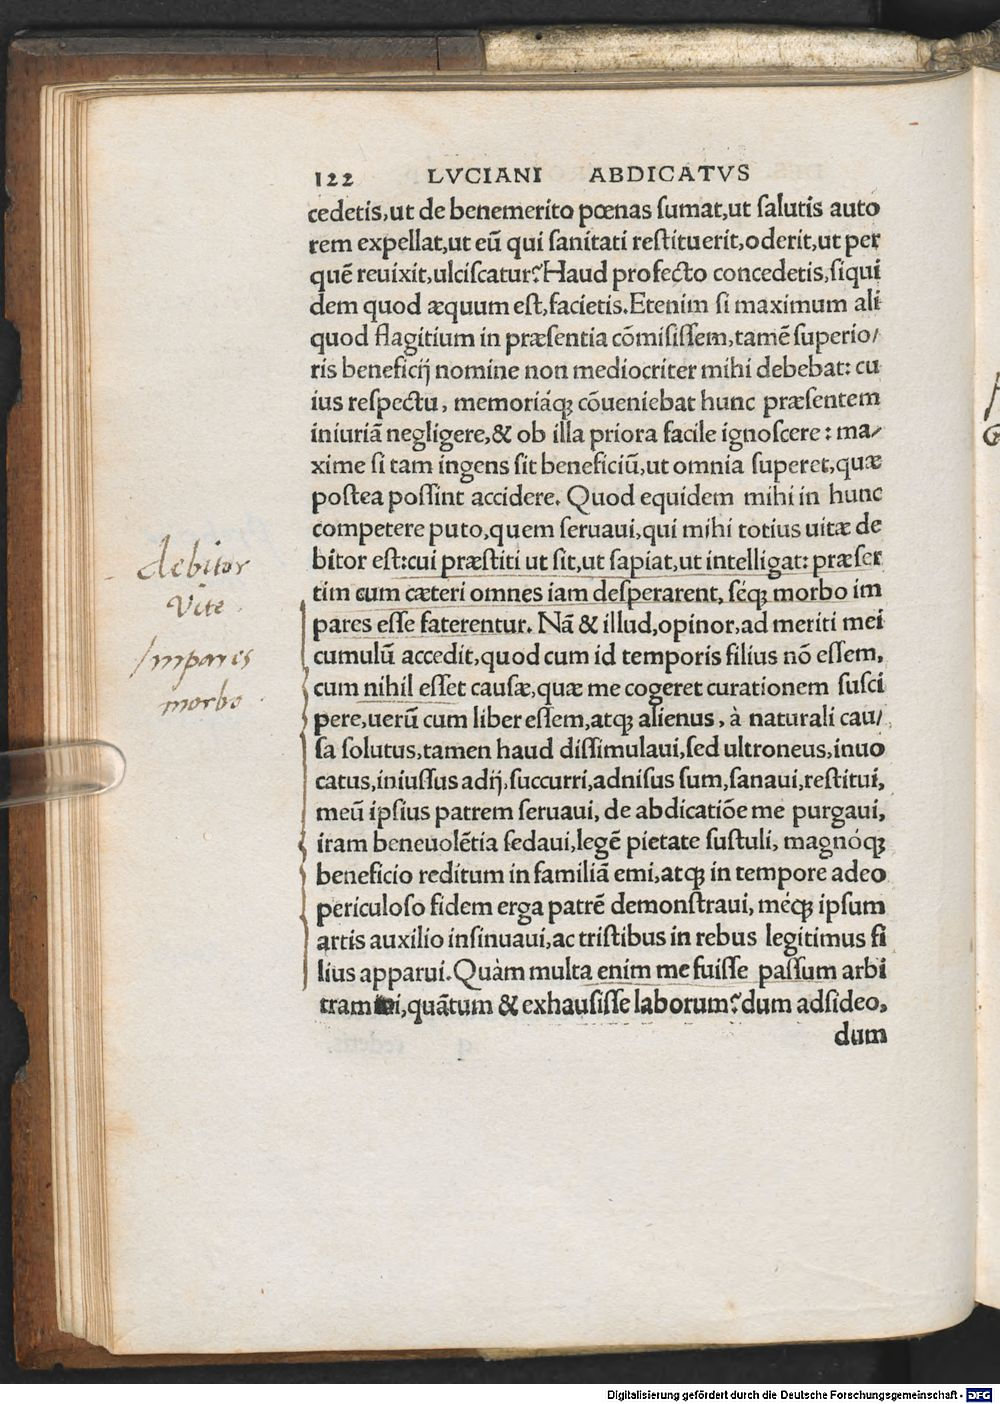 122 LVCIANI ABDICATVS
cedetis,ut de benemerito pœnas ſumat,ut ſalutis auto
rem expellat,ut eū qui ſanitati reſtituerit,oderit,ut per
quē reuixit,ulciſcatur? Haud profecto concedetis,ſiqui
dem quod æquum eſt,facietis.Etenim ſi maximum ali
quod flagitium in præſentia cōmiſiſſem,tamē ſuperio/
ris beneficij nomine non mediocriter mihi debebat: cu
ius reſpectu, memoriáqꝫ cōueniebat hunc præſentem
iniuriā negligere,& ob illa priora facile ignoſcere: ma/
xime ſi tam ingens ſit beneficiū,ut omnia ſuperet,quæ
poſtea poſſint accidere. Quod equidem mihi in hunc
competere puto,quem ſeruaui,qui mihi totius uitæ de
bitor eſt:cui præſtiti ut ſit,ut ſapiat,ut intelligat: præſer
tim cum cæteri omnes iam deſperarent, ſéqꝫ morbo im
pares eſſe faterentur. Nā & illud,opinor,ad meriti mei
cumulū accedit,quod cum id temporis filius nō eſſem,
cum nihil eſſet cauſæ,quæ me cogeret curationem ſuſci
pere,uerū cum liber eſſem,atqꝫ alienus, à naturali cau/
ſa ſolutus,tamen haud diſſimulaui,ſed ultroneus,inuo
catus,iniuſſus adij,ſuccurri,adniſus ſum,ſanaui,reſtitui,
meū ipſius patrem ſeruaui, de abdicatiōe me purgaui,
iram beneuolētia ſedaui,legē pietate ſuſtuli, magnóqꝫ
beneficio reditum in familiā emi,atqꝫ in tempore adeo
periculoſo fidem erga patrē demonſtraui, méqꝫ ipſum
artis auxilio inſinuaui,ac triſtibus in rebus legitimus fi
lius apparui. Quàm multa enim me fuiſſe paſſum arbi
tramini,quātum & exhauſiſſe laborum? dum adſideo,
dum
debitor
vite
Impares
morbo
Digitalisierung gefördert durch die Deutsche Forschungsgemeinschaft - DFG